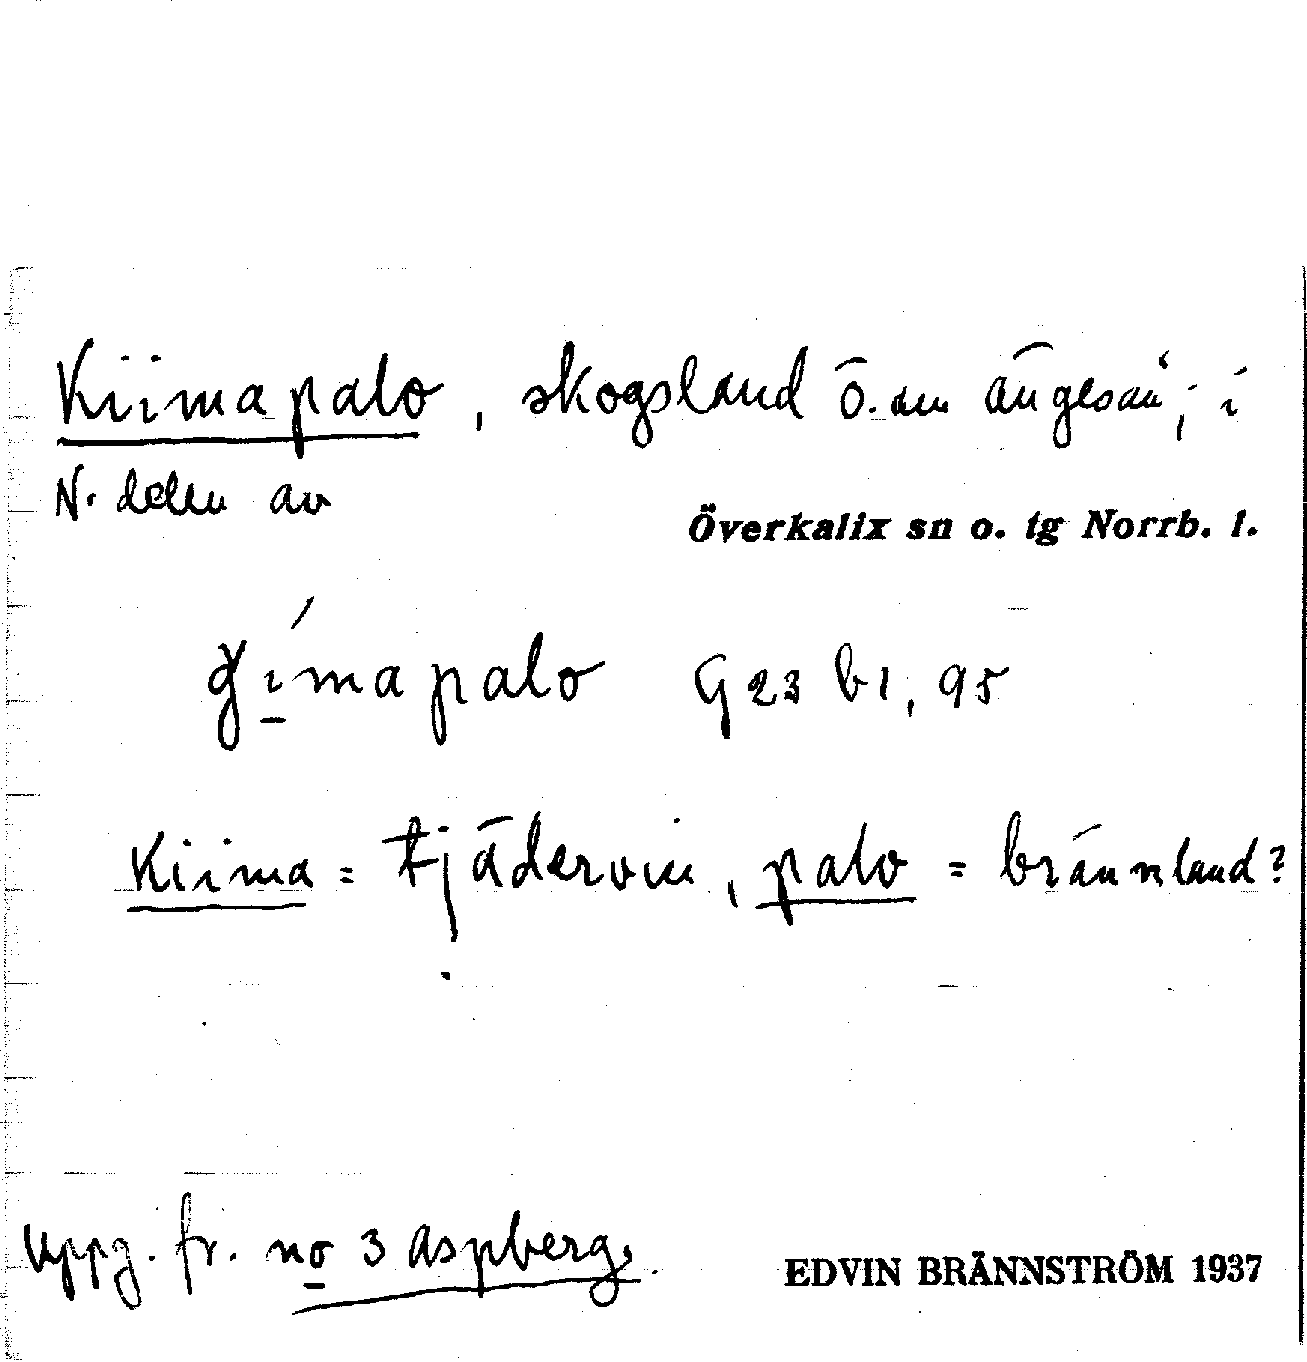 Kiimapalo, skogsland ö. om ängesån; i
N. delen av
Överkalix sn o. tg Norrb. l.
gímapalo G23 b1, 95
Kiima = tjäder, palo = brännland?
Uppg. fr. no 3 aspberg.
EDVIN BRÄNNSTRÖM 1937